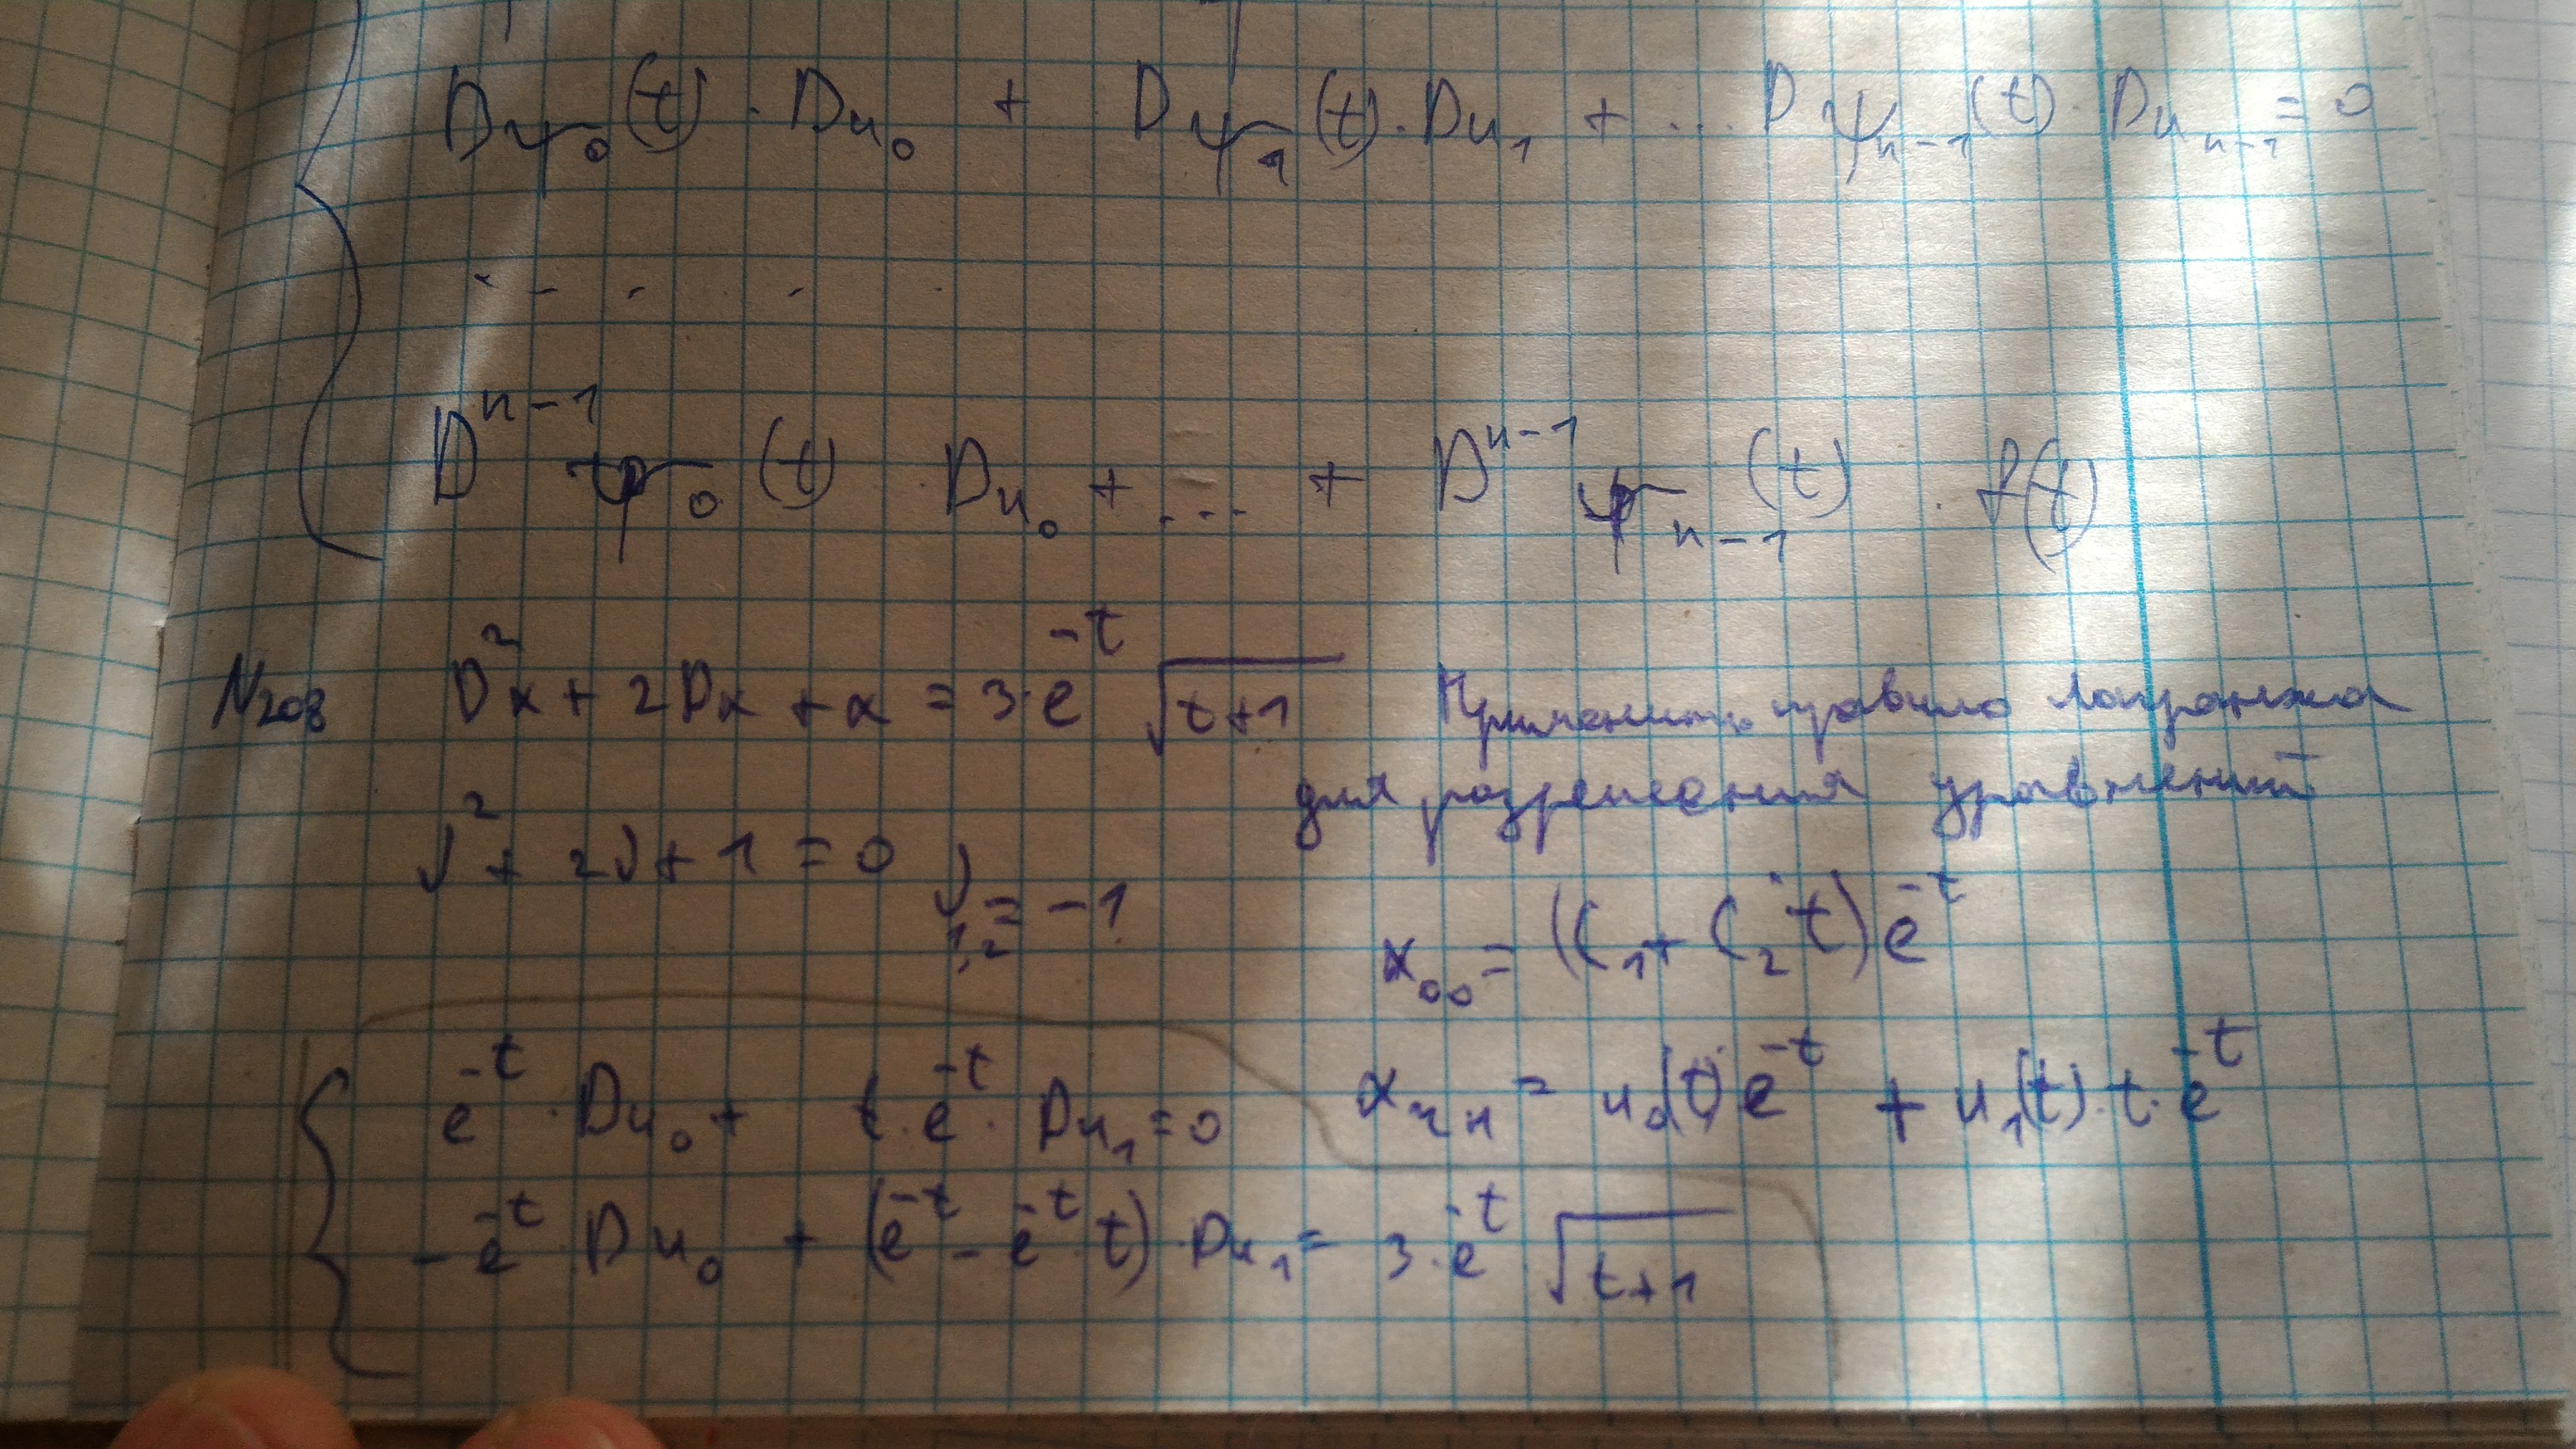 Dψ₀(t)·Du₀ + Dψ₁(t)·Du₁ + ... Dψₙ₋₁(t)·Duₙ₋₁ = 0
. . . . .
Dⁿ⁻¹ψ₀(t) Du₀ + ... + Dⁿ⁻¹ψₙ₋₁(t) · f(t)
N208 D²x + 2Dx + x = 3·e^(-t) √(t+1) Применить правило Лагранжа
для разрешения уравнений
λ² + 2λ + 1 = 0 λ₁,₂ = -1
x₀₀ = (C₁ + C₂t)e^(-t)
xчн = u₀(t)e^(-t) + u₁(t)·t·e^(-t)
e^(-t)·Du₀ + t·e^(-t)·Du₁ = 0
-e^(-t)·Du₀ + (e^(-t) - e^(-t)·t)·Du₁ = 3·e^(-t)·√(t+1)